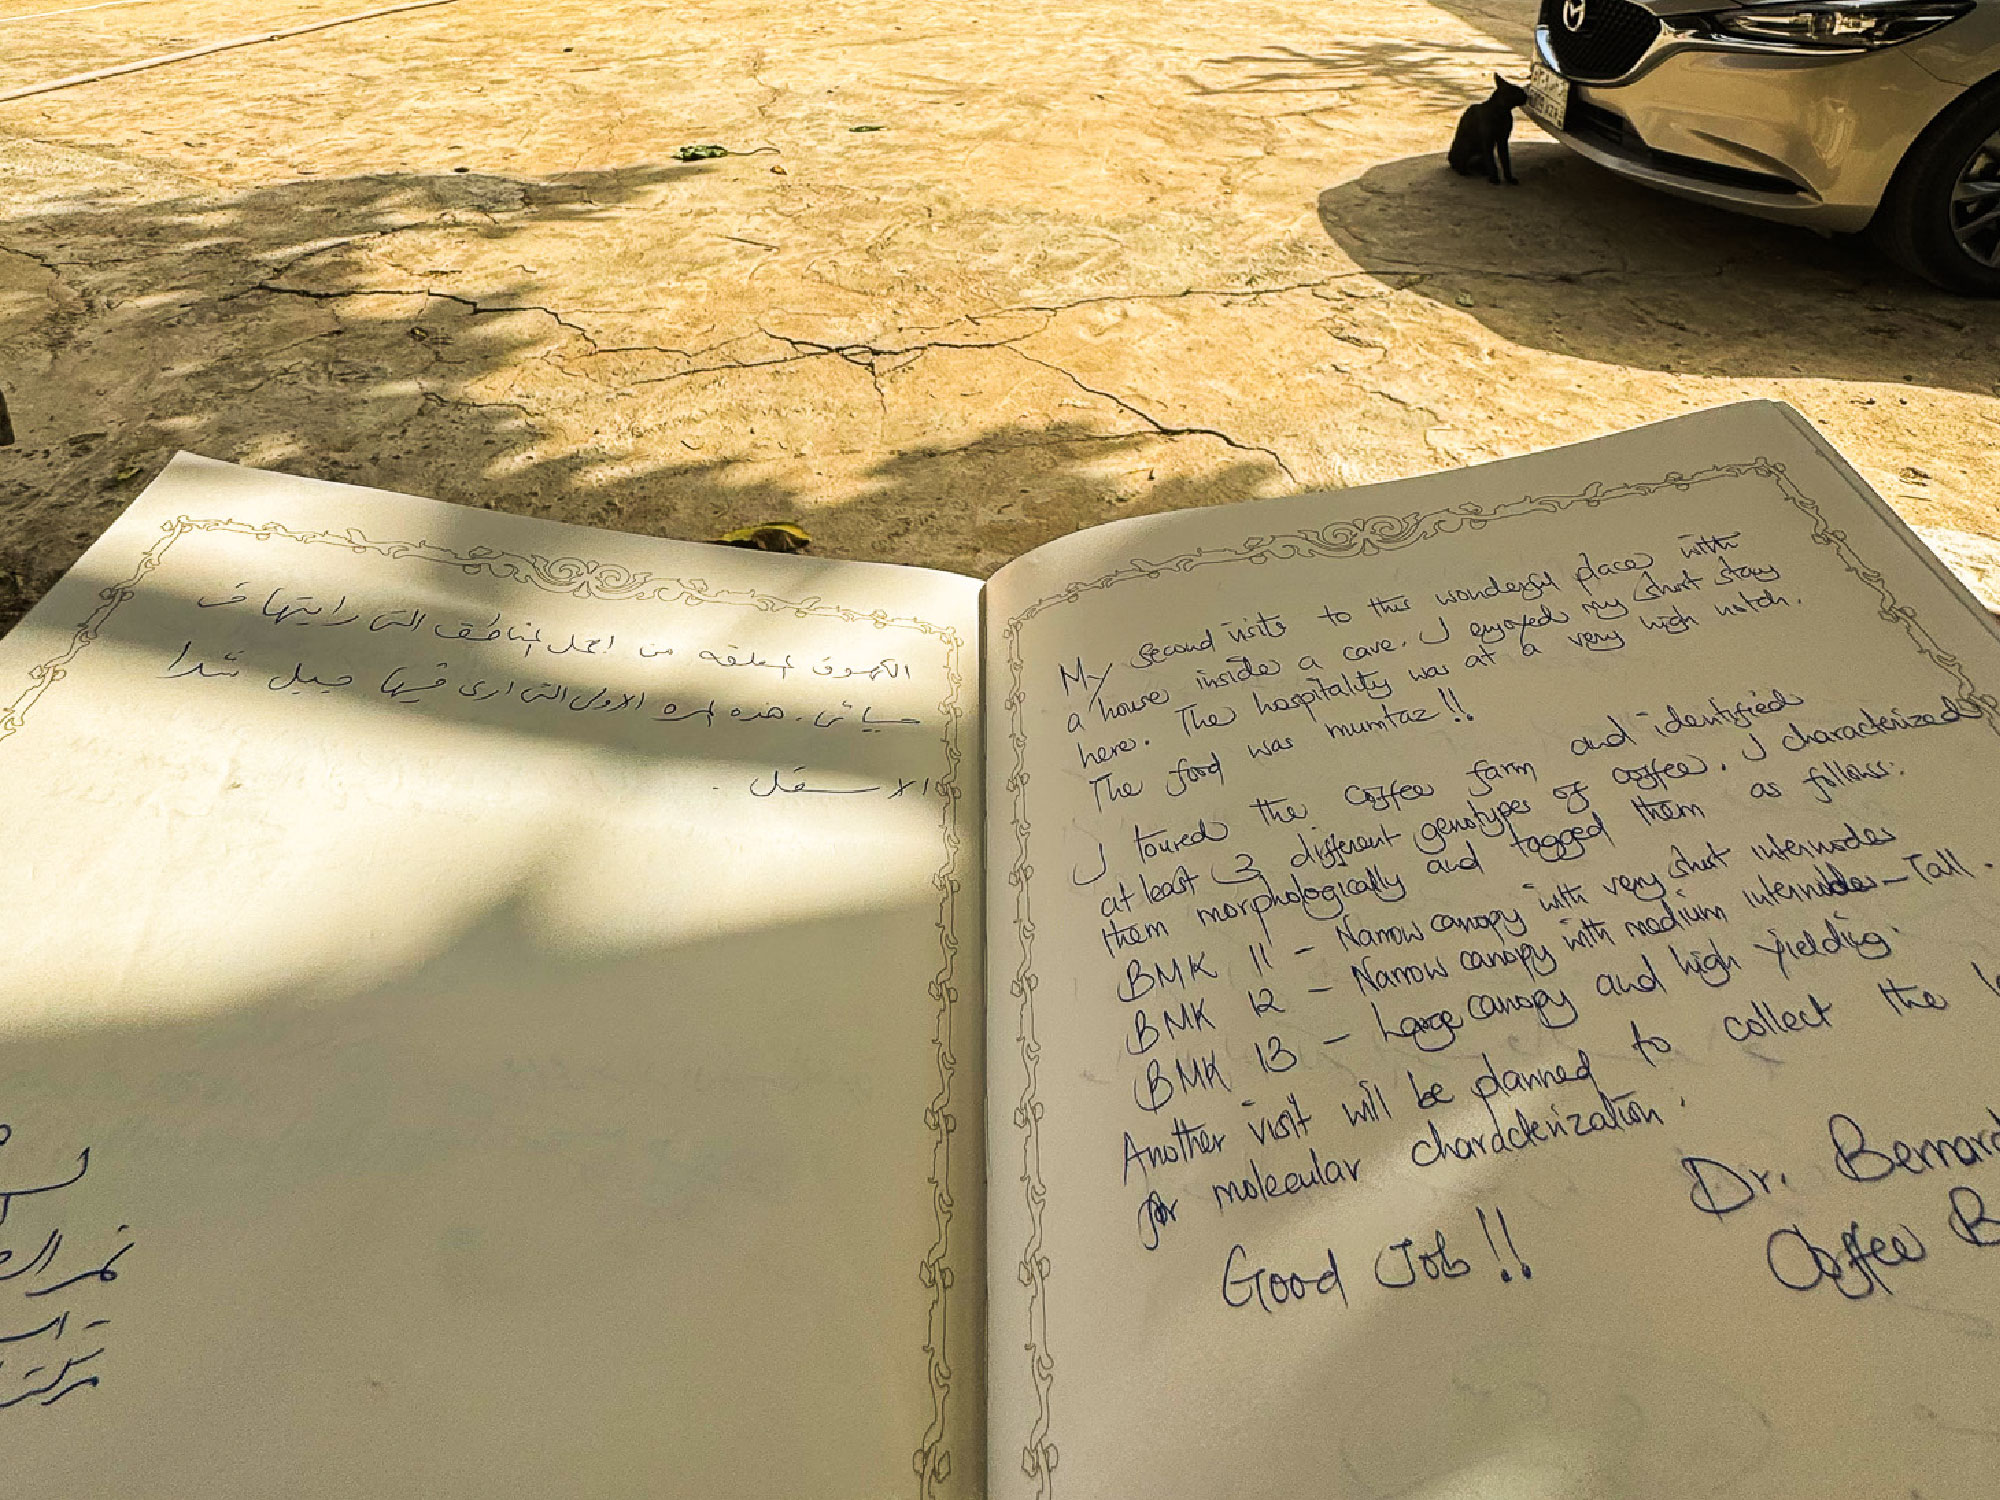 الكهوف المعلقه من اجمل المناطق التي رايتها في
حياتي. هذه المره الاولى التي ارى فيها جبل شدا
الاسفل.
My second visits to this wonderful place with
a house inside a cave. I enjoyed my short stay
here. The hospitality was at a very high notch.
The food was mumtaz!!
I toured the coffee farm and identified
at least 3 different genotypes of coffee. I characterized
them morphologically and tagged them as follows:
BMK 11 - Narrow canopy with very short internodes
BMK 12 - Narrow canopy with medium internodes - Tall.
BMK 13 - Large canopy and high yielding.
Another visit will be planned to collect the
for molecular characterization.
Good Job!!
Dr. Bernard
Coffee B